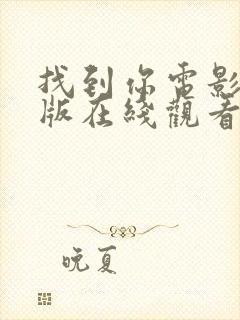 找到你电影
版在綫觀看
晚夏